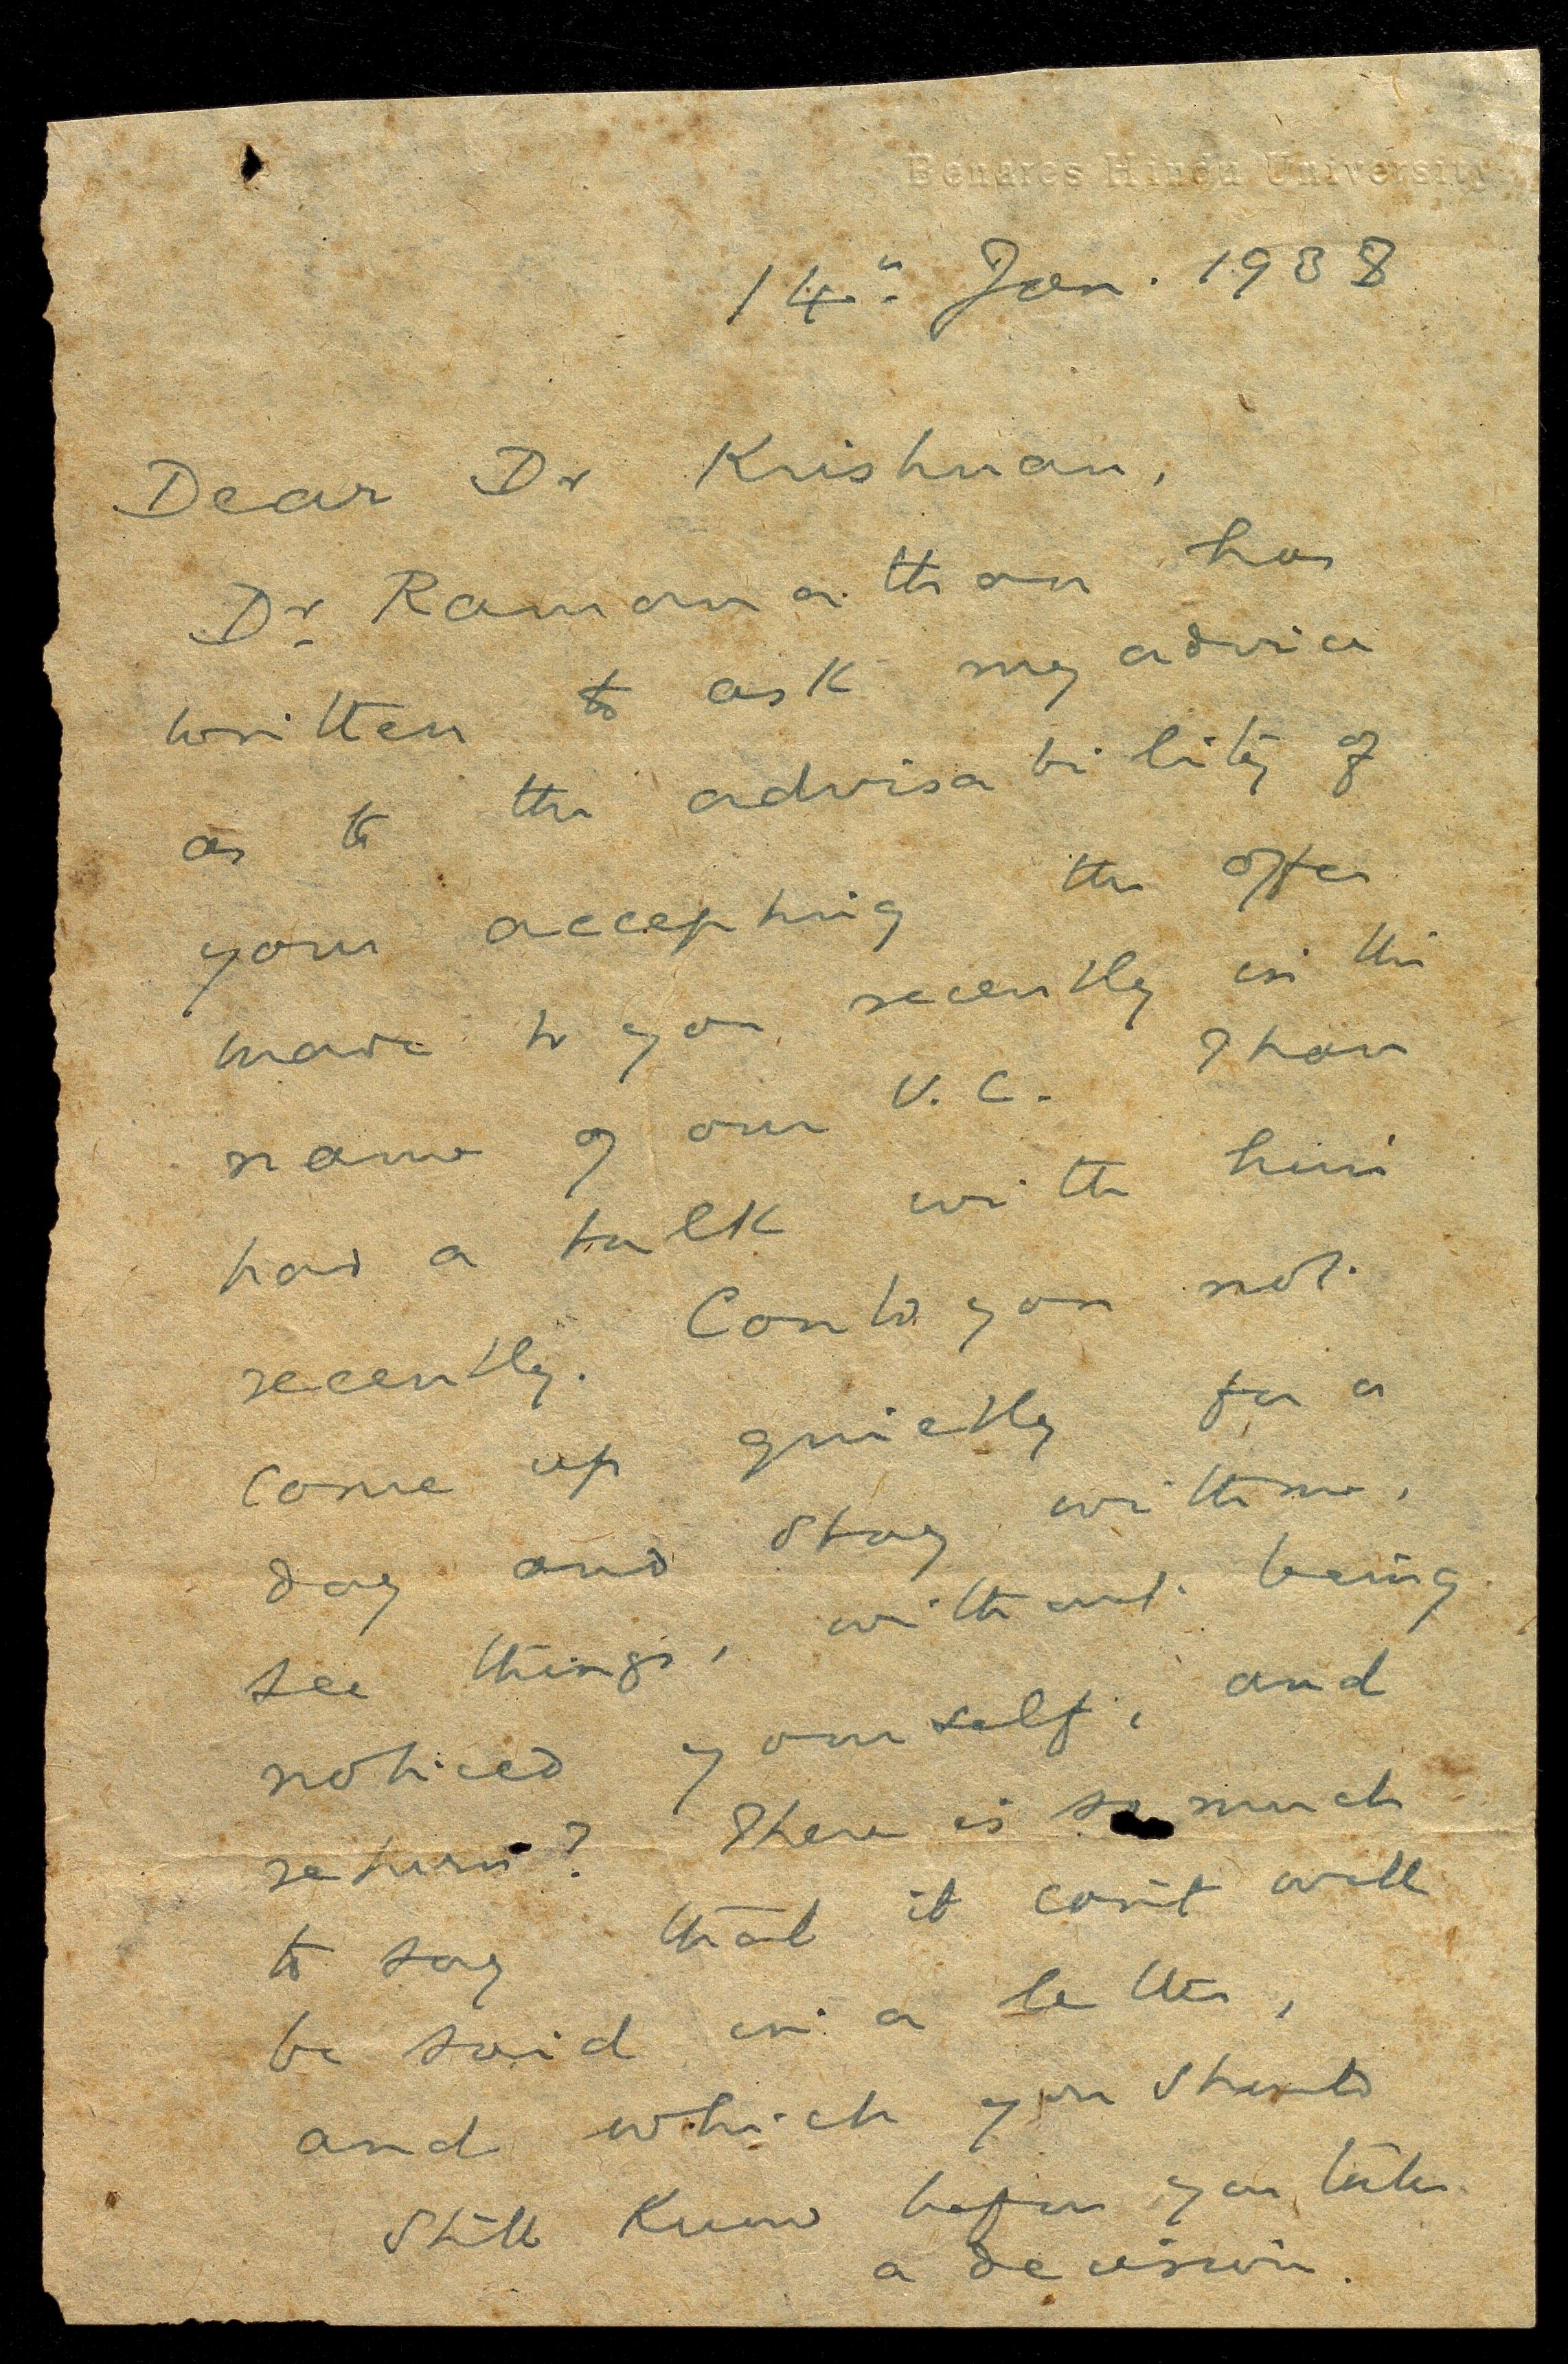 Benares Hindu University
14th Jan. 1938
Dear Dr Krishnan,
Dr Ramanathan has
written to ask my advice
as to the advisability of
your accepting the offer
made to you recently in the
name of our V.C. I have
had a talk with him
recently. Could you not
come up quietly for a
day and stay with me,
see things, without being
noticed yourself, and
return? There is so much
to say that it can't well
be said in a letter,
and which you should
still know before you take
a decision.